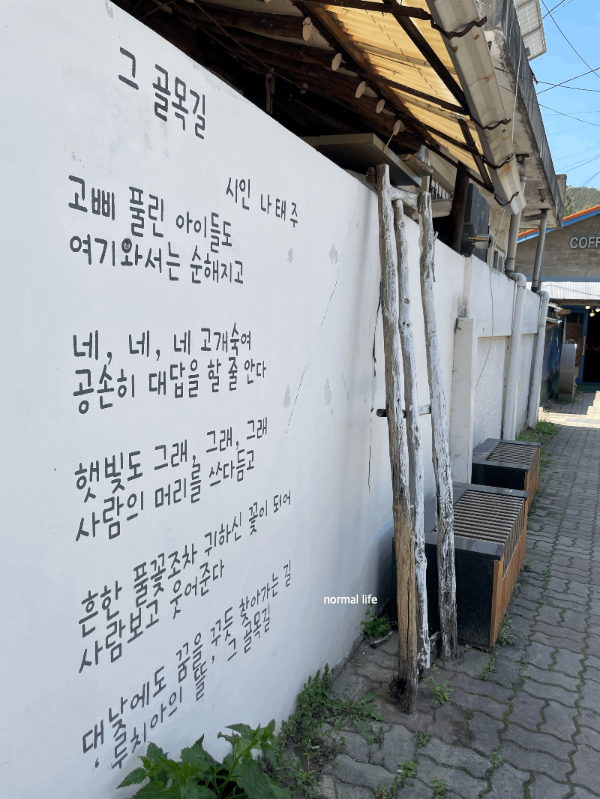 그 골목길
시인 나태주
고삐 풀린 아이들도
여기와서는 순해지고
네, 네, 네 고개숙여
공손히 대답을 할 줄 안다
햇빛도 그래, 그래, 그래
사람의 머리를 쓰다듬고
흔한 풀꽃조차 귀하신 꽃이 되어
사람보고 웃어준다
대낮에도 꿈을, 꾸듯 찾아가는 길
루치아의 뜰, 그 골목길
normal life
COFF